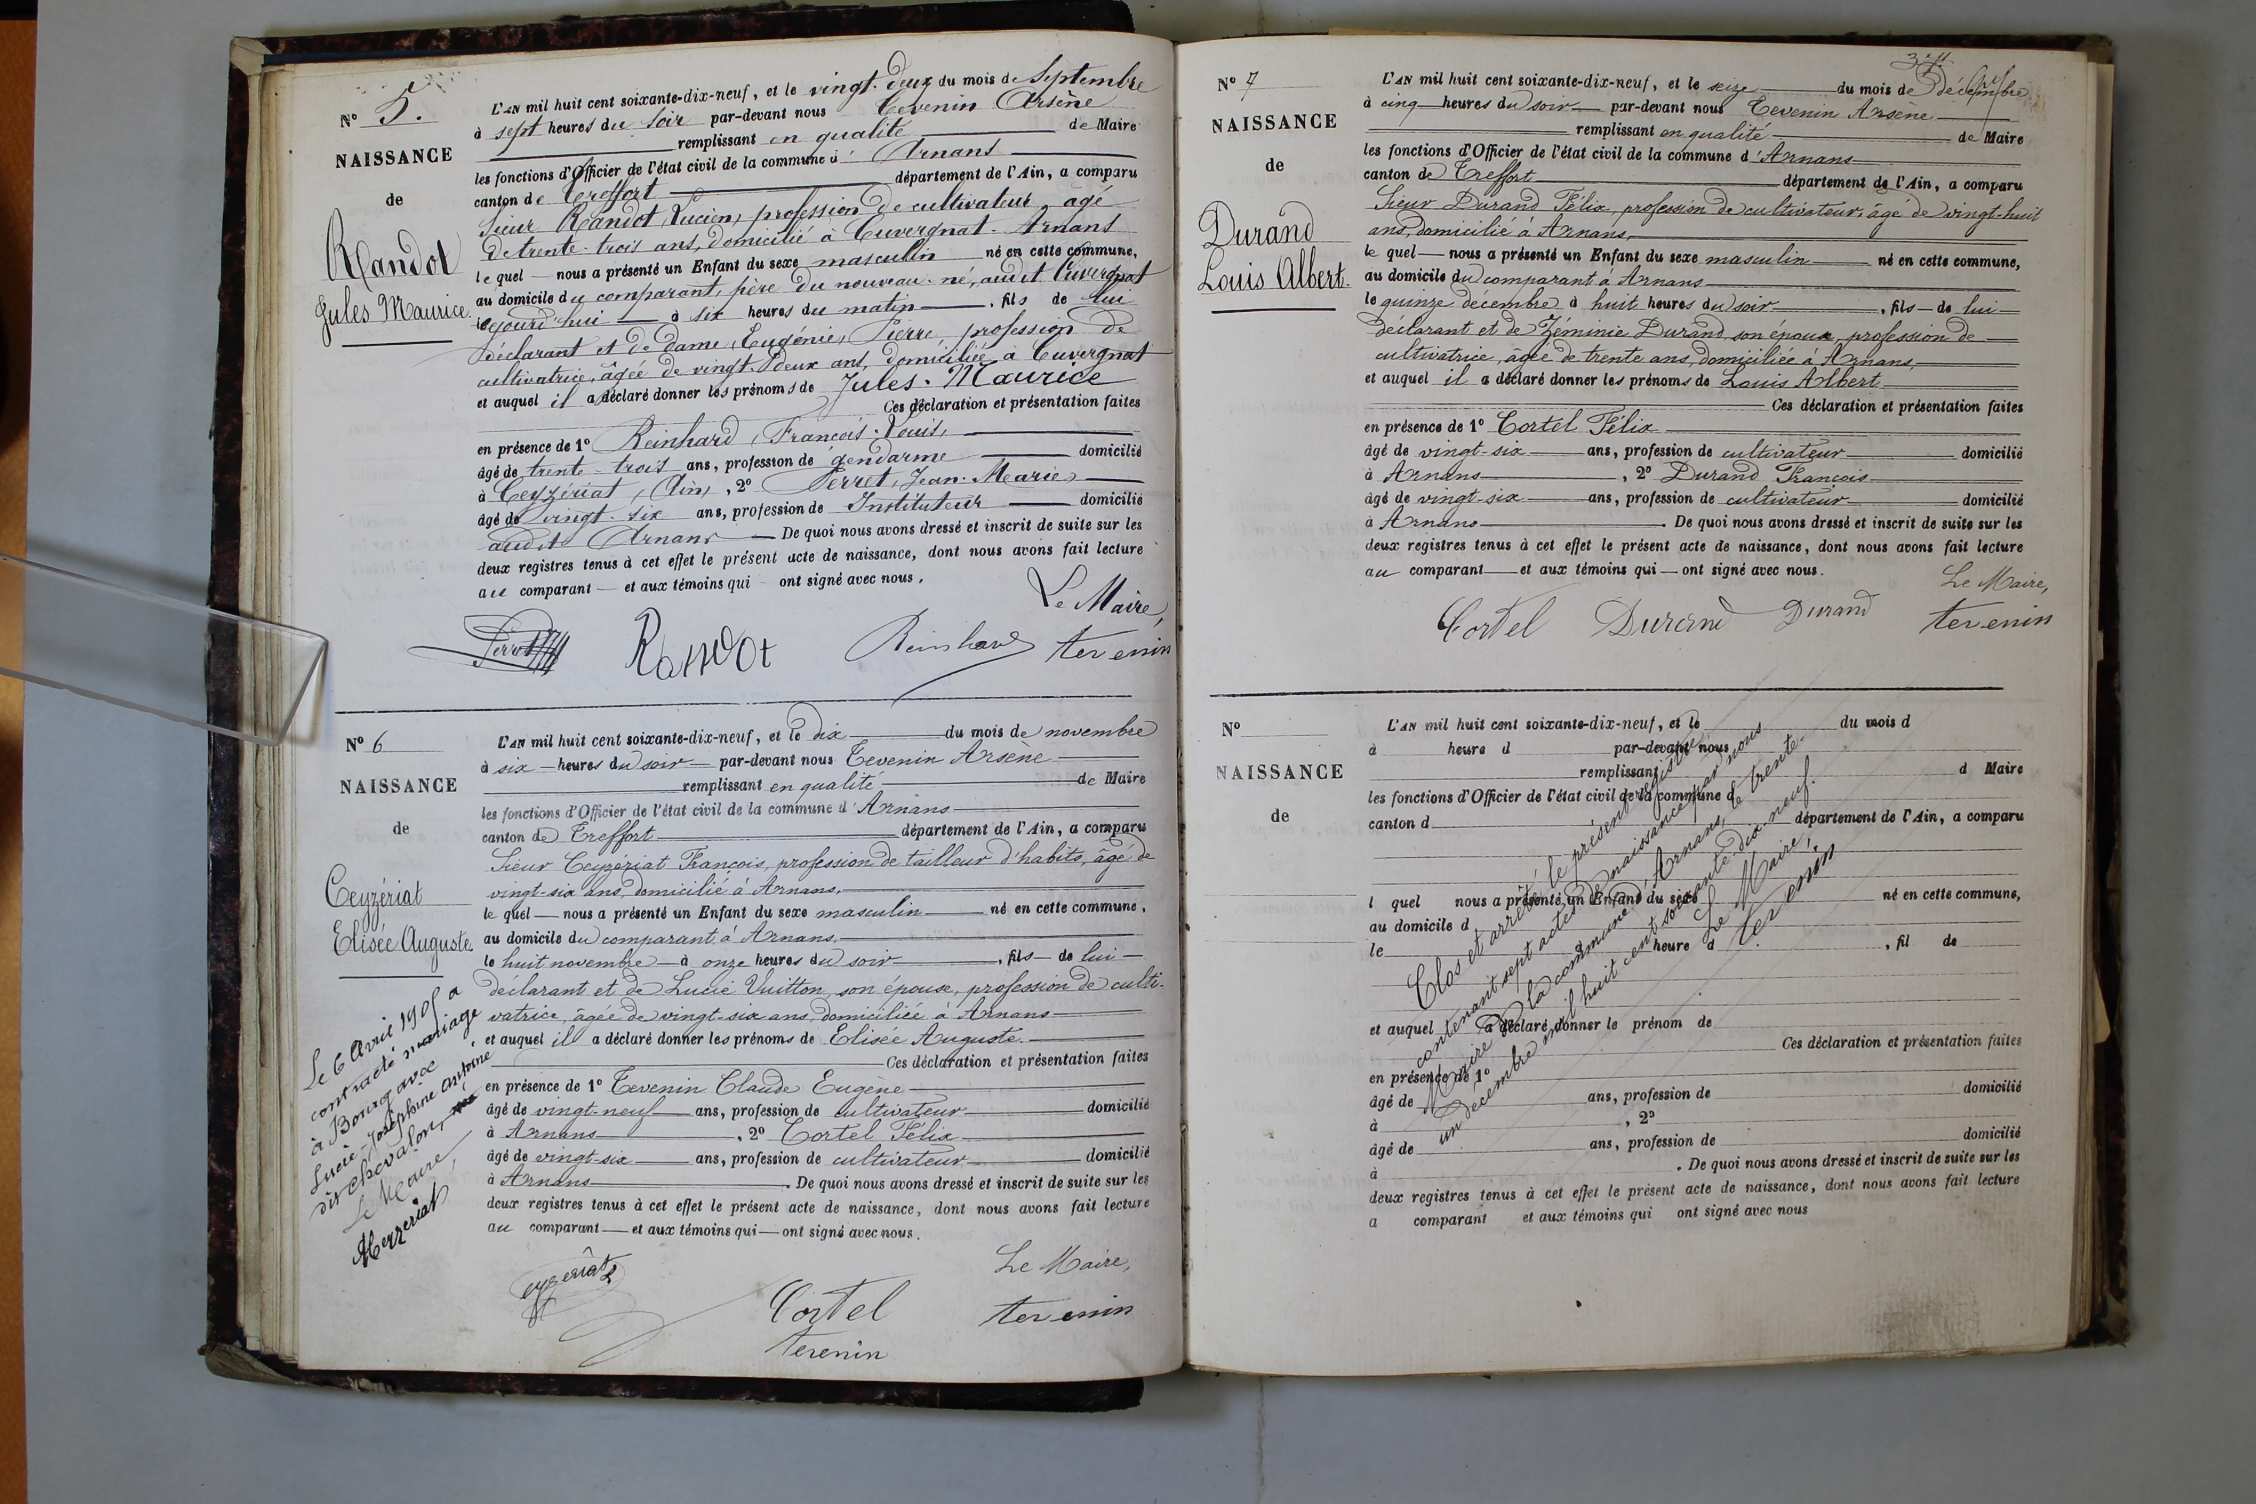 N° 5.
NAISSANCE
de
Randot
Jules Maurice.
L'AN mil huit cent soixante-dix-neuf, et le vingt-deux du mois de Septembre
à sept heures du soir par-devant nous Tevenin Arsène
remplissant en qualité de Maire
les fonctions d'Officier de l'état civil de la commune d'Arnans
canton de Treffort département de l'Ain, a comparu
Sieur Randot, Lucien, profession de cultivateur âgé
de trente-trois ans, domicilié à Cuvergnat-Arnans
le quel nous a présenté un Enfant du sexe masculin né en cette commune,
au domicile du comparant, père du nouveau-né, audit Cuvergnat
le jourd'hui à six heures du matin, fils de lui
déclarant et de dame, Eugénie, Pierre, profession de
cultivatrice, âgée de vingt-deux ans, domiciliée à Cuvergnat
et auquel il a déclaré donner les prénoms de Jules-Maurice
Ces déclaration et présentation faites
en présence de 1° Reinhard, François-Louis,
âgé de trente-trois ans, profession de gendarme domicilié
à Ceyzériat, (Ain), 2° Perret, Jean-Marie
âgé de vingt-six ans, profession de Instituteur domicilié
audit Arnans De quoi nous avons dressé et inscrit de suite sur les
deux registres tenus à cet effet le présent acte de naissance, dont nous avons fait lecture
au comparant et aux témoins qui ont signé avec nous.
Le Maire,
Perret Randot Reinhard tevenin
N° 6
NAISSANCE
de
Ceyzériat
Elisée Auguste.
Le 6 Avril 1905 a
contracté mariage
à Bourg avec
Lucie-Joséphine Antoine
dit Chevalon,
Le Maire,
L'AN mil huit cent soixante-dix-neuf, et le dix du mois de novembre
à six heures du soir par-devant nous Tevenin Arsène
remplissant en qualité de Maire
les fonctions d'Officier de l'état civil de la commune d'Arnans
canton de Treffort département de l'Ain, a comparu
Sieur Ceyzériat François, profession de tailleur d'habits, âgé de
vingt-six ans, domicilié à Arnans,
le quel nous a présenté un Enfant du sexe masculin né en cette commune,
au domicile du comparant à Arnans,
le huit novembre à onze heures du soir, fils de lui
déclarant et de Lucie Vuitton son épouse, profession de culti-
vatrice, âgée de vingt-six ans, domiciliée à Arnans
et auquel il a déclaré donner les prénoms de Elisée Auguste.
Ces déclaration et présentation faites
en présence de 1° Tevenin Claude Eugène
âgé de vingt-neuf ans, profession de cultivateur domicilié
à Arnans, 2° Cortel Félix
âgé de vingt-six ans, profession de cultivateur domicilié
à Arnans. De quoi nous avons dressé et inscrit de suite sur les
deux registres tenus à cet effet le présent acte de naissance, dont nous avons fait lecture
au comparant et aux témoins qui ont signé avec nous.
Le Maire,
Ceyzériat Cortel tevenin
tevenin
N° 7
NAISSANCE
de
Durand
Louis Albert.
L'AN mil huit cent soixante-dix-neuf, et le seize du mois de décembre
à cinq heures du soir par-devant nous Tevenin Arsène
remplissant en qualité de Maire
les fonctions d'Officier de l'état civil de la commune d'Arnans
canton de Treffort département de l'Ain, a comparu
Sieur Durand Félix, profession de cultivateur, âgé de vingt-huit
ans, domicilié à Arnans,
le quel nous a présenté un Enfant du sexe masculin né en cette commune,
au domicile du comparant à Arnans
le quinze décembre à huit heures du soir, fils de lui
déclarant et de Zéminie Durand son épouse, profession de
cultivatrice, âgée de trente ans, domiciliée à Arnans,
et auquel il a déclaré donner les prénoms de Louis Albert
Ces déclaration et présentation faites
en présence de 1° Cortel Félix
âgé de vingt-six ans, profession de cultivateur domicilié
à Arnans, 2° Durand François
âgé de vingt-six ans, profession de cultivateur domicilié
à Arnans. De quoi nous avons dressé et inscrit de suite sur les
deux registres tenus à cet effet le présent acte de naissance, dont nous avons fait lecture
au comparant et aux témoins qui ont signé avec nous.
Le Maire,
Cortel Durand Durand tevenin
N°
NAISSANCE
de
L'AN mil huit cent soixante-dix-neuf, et le du mois d
à heure d par-devant nous
remplissant d Maire
les fonctions d'Officier de l'état civil de la commune d
canton d département de l'Ain, a comparu
l quel nous a présenté un Enfant du sexe né en cette commune,
au domicile d
le heure d, fil de
et auquel a déclaré donner le prénom de
Ces déclaration et présentation faites
en présence de 1°
âgé de ans, profession de domicilié
à, 2°
âgé de ans, profession de domicilié
à. De quoi nous avons dressé et inscrit de suite sur les
deux registres tenus à cet effet le présent acte de naissance, dont nous avons fait lecture
a comparant et aux témoins qui ont signé avec nous
Clos et arrêté le présent registre
contenant sept actes de naissance par nous
Maire de la commune d'Arnans, le trente-
un décembre mil huit cent soixante-dix-neuf.
Le Maire,
tevenin